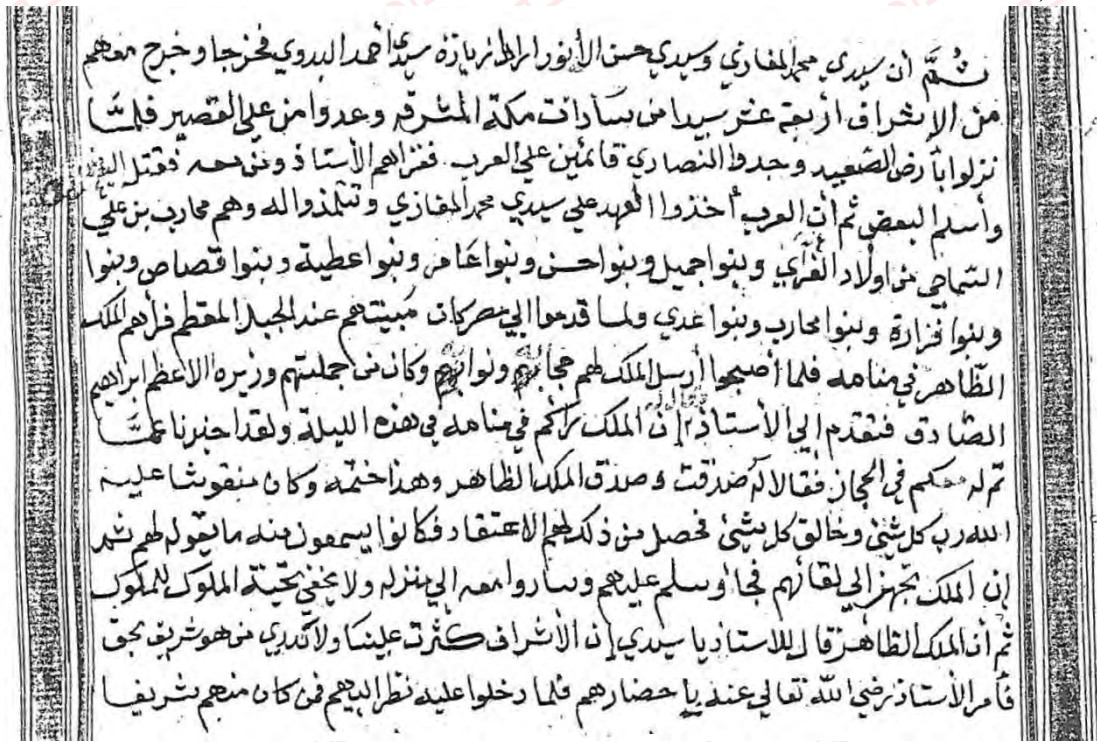 ثم أن سيدي محمد المغازي وسيدي حسن الأنور أرادا زيارة سيدي أحمد البدوي فخرجا وخرج معهم
من الإشراف أربعة عشر سيدا من سادات مكة المشرفه وعدوا من علي القصير فلما
نزلوا بأرض الصعيد وجدوا النصاري قائمين علي العرب فغزاهم الأستاذ ومن معه فقتل البعض
وأسلم البعض ثم أن العرب أخذوا العهد علي سيدي محمد المغازي وتتلمذوا له وهم محارب بن علي
من اولاد وبنوا جميل وبنوا حسن وبنوا عامر وبنوا عطية وبنوا قصاص وبنوا
وبنوا فزارة وبنوا محارب وبنوا عدي ولما قدموا الي مصر كان مبيتهم عند الجبل المقطم فرأهم الملك
الظاهر في منامه فلما أصبحوا أرسل الملك لهم حجابه ونوابه وكان من جملتهم وزيره الاعظم ابراهيم
الصادق فتقدم الي الأستاذ إن الملك رآكم في منامه في هذه الليلة ولقد اخبرنا عما
تم له معكم في الحجاز فقالا له صدقت وصدق الملك الظاهر وهذا ختمه وكان منقوشا عليه
الله رب كل شئ وخالق كل شئ فحصل من ذلك لهم الاعتقاد فكانوا يسمعون منه ما يقوله لهم ثم
إن الملك تجهز الي لقائهم فجاء وسلم عليهم وساروا معه الي منزله ولا يخفي تحية الملوك للملوك
ثم أن الملك الظاهر قال للاستاذ يا سيدي إن الأشراف كثرت علينا ولا ندري من هو شريف بحق
فأمر الأستاذ رضي الله تعالي عنه بإحضارهم فلما دخلوا عليه نظر اليهم فمن كان منهم شريفا